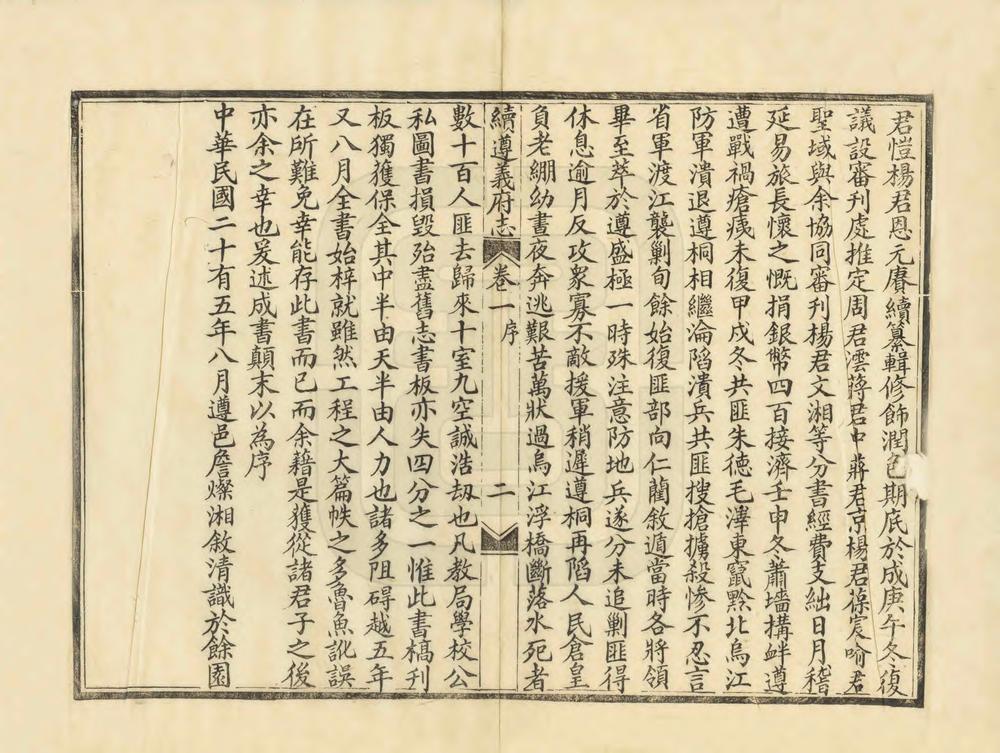 君愷楊君恩元賡續纂輯修飾潤色期底於成庚午冬復
議設審刊處推定周君澐蔣君中蔣君京楊君葆宸喻君
聖域與余協同審刊楊君文湘等分書經費支絀日月稽
延易旅長懷之慨捐銀幣四百接濟壬申冬蕭墻搆衅遵
遭戰禍瘡痍未復甲戌冬共匪朱德毛澤東竄黔北烏江
防軍潰退遵桐相繼淪陷潰兵共匪搜搶擄殺慘不忍言
省軍渡江襲剿旬餘始復匪部向仁藺敘遁當時各將領
畢至萃於遵盛極一時殊注意防地兵遂分未追剿匪得
休息逾月反攻衆寡不敵援軍稍遲遵桐再陷人民倉皇
負老綳幼晝夜奔逃艱苦萬狀過烏江浮橋斷落水死者
續遵義府志 卷一 序 二
數十百人匪去歸來十室九空誠浩刼也凡教局學校公
私圖書損毀殆盡舊志書板亦失四分之一惟此書槁刋
板獨獲保全其中半由天半由人力也諸多阻碍越五年
又八月全書始梓就雖然工程之大篇帙之多魯魚訛誤
在所難免幸能存此書而已而余藉是獲從諸君子之後
亦余之幸也爰述成書顛末以為序
中華民國二十有五年八月遵邑詹燦湘敘清識於餘園